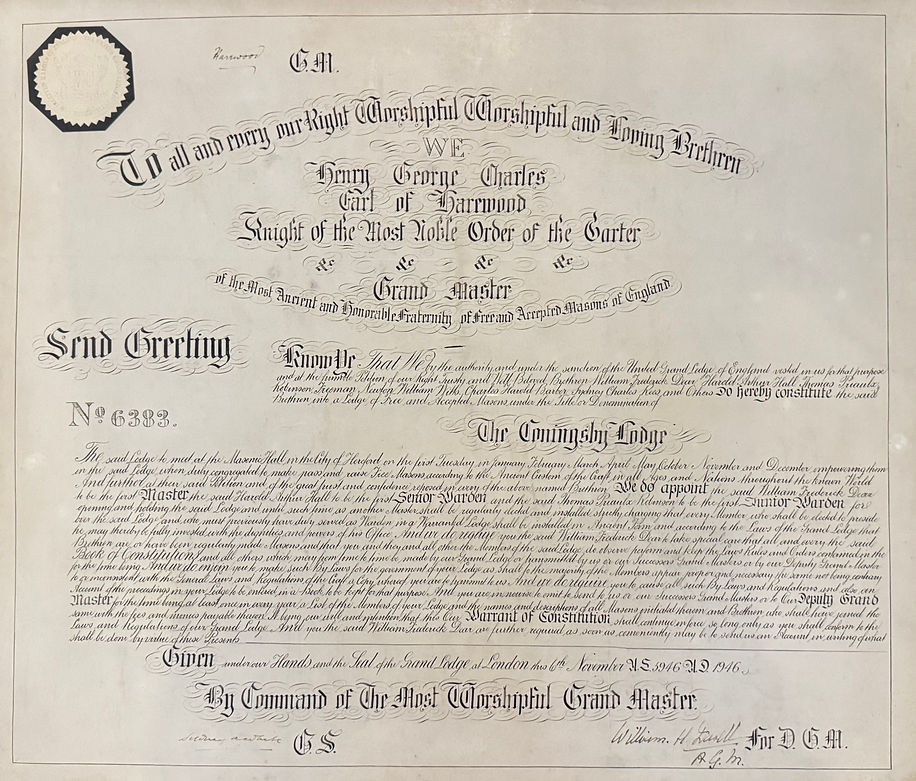 Harewood G.M.
To all and every our Right Worshipful Worshipful and Loving Brethren
WE
Henry George Charles
Earl of Harewood
Knight of the Most Noble Order of the Garter
&c &c &c &c
Grand Master
of the Most Ancient and Honorable Fraternity of Free and Accepted Masons of England
Send Greeting
Know Ye That We by the authority and under the sanction of the United Grand Lodge of England vested in us for that purpose
and at the humble Petition of our Right Trusty and Well Beloved Brethren William Frederick Dear Harold Arthur Hall Thomas
Robinson Freeman Newton William Charles Samuel Sydney Charles Rees and Others Do hereby constitute the said
Brethren into a Lodge of Free and Accepted Masons under the Title or Denomination of
No 6383.
The Coningsby Lodge
The said Lodge to meet at the Masonic Hall in the City of Hereford on the first Tuesday in January February March April May October November and December empowering them
in the said Lodge when duly congregated to make pass and raise Free Masons according to the Ancient Custom of the Craft in all Ages and Nations throughout the known World
And further at their said Petition and of the great trust and confidence reposed in every of the above named Brethren We do appoint the said William Frederick Dear
to be the first Master the said Harold Arthur Hall to be the first Senior Warden and the said Thomas to be the first Junior Warden for
opening and holding the said Lodge and until such time as another Master shall be regularly elected and installed strictly charging that every Member who shall be elected to preside
over the said Lodge and who must previously have duly served as Warden in a Warranted Lodge shall be installed in Ancient Form and according to the Laws of the Grand Lodge that
he may thereby be fully invested with the dignities and powers of his Office And we do require you the said William Frederick Dear to take special care that all and every the said
Brethren are or have been regularly made Masons and that you and they and all other the Members of the said Lodge do observe perform and keep the Laws Rules and Orders contained in the
Book of Constitutions and all others which may from time to time be made by our Grand Lodge or transmitted by us or our Successors Grand Masters or by our Deputy Grand Master
for the time being And we do enjoin you to make such By Laws for the government of your Lodge as shall to the majority of the Members appear proper and necessary the same not being contrary
to or inconsistent with the General Laws and Regulations of the Craft a Copy whereof you are to transmit to us And we do require you to cause all such By Laws and Regulations and also an
Account of the proceedings in your Lodge to be entered in a Book to be kept for that purpose And you are in nowise to omit to send to us or our Successors Grand Masters or to Our Deputy Grand
Master for the time being at least once in every year a List of the Members of your Lodge and the names and descriptions of all Masons initiated therein and Brethren who shall have joined the
same with the fees and monies payable thereon It being our will and intention that this Our Warrant of Constitution shall continue in force so long only as you shall conform to the
Laws and Regulations of our Grand Lodge And you the said William Frederick Dear are further required as soon as conveniently may be to send us an Account in writing of what
shall be done by virtue of these Presents
Given under our Hands and the Seal of the Grand Lodge at London this 6th November A.L. 5946 A.D. 1946.
By Command of The Most Worshipful Grand Master.
G.S.
William. H For D.G.M.
A.G.M.